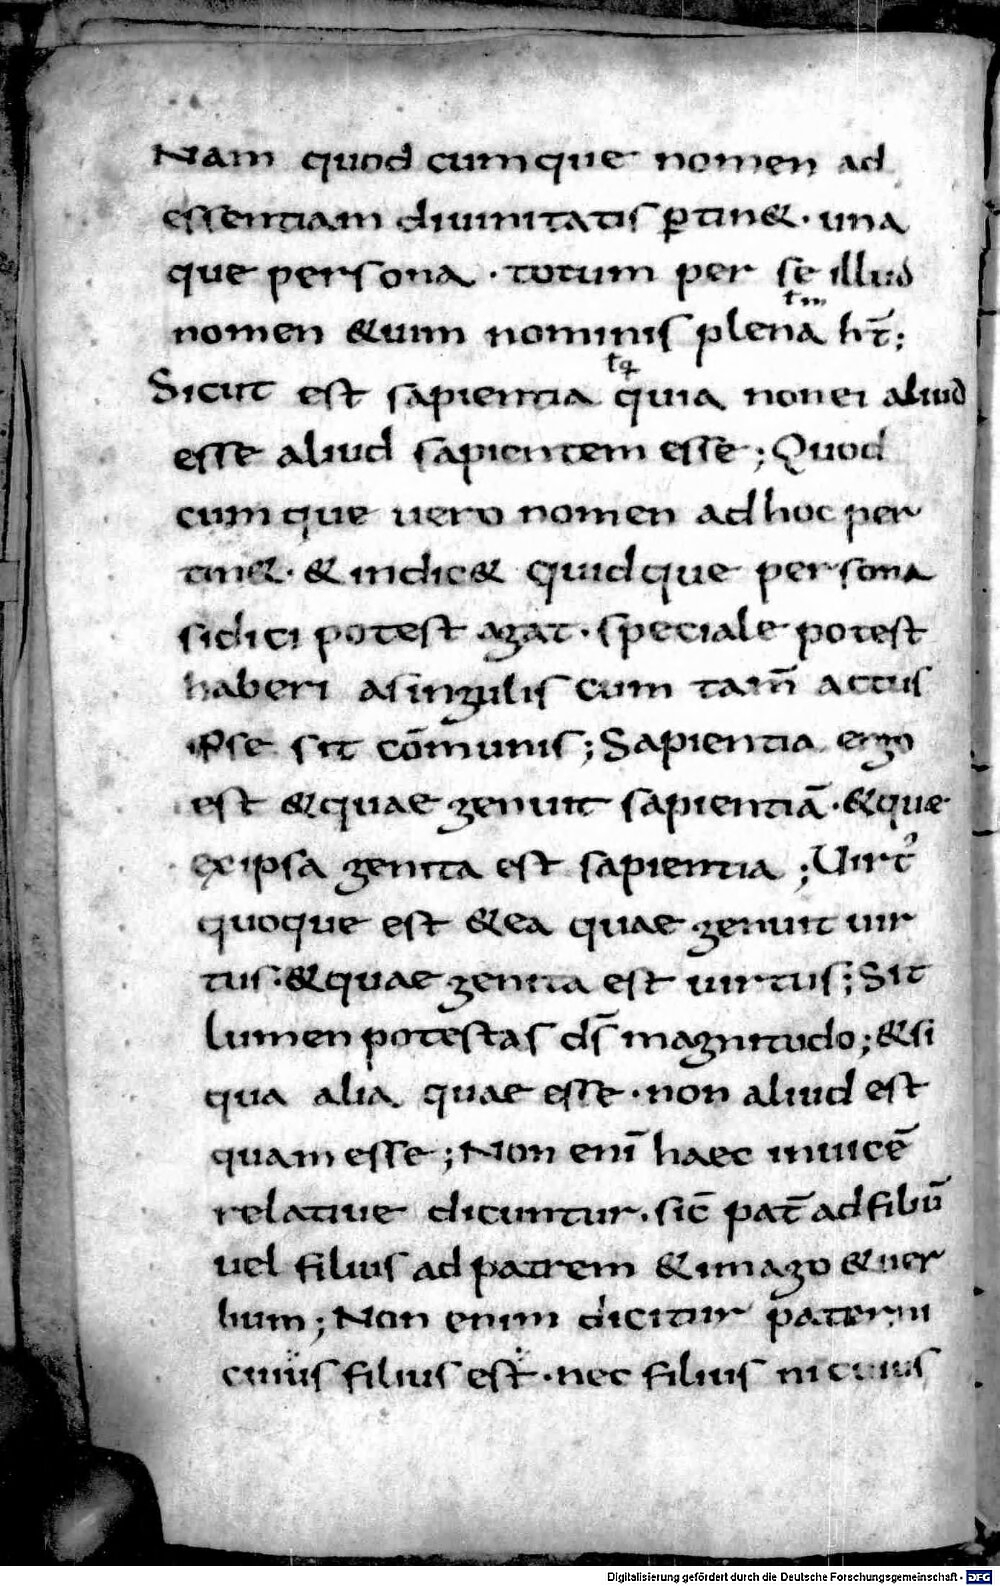 Nam quod cumque nomen ad
essentiam diuinitatis ꝑtin&. una
que persona. totum per se illud
tm
nomen &uim nominis plena hr̄t;
tq
Sicut est sapientia quia nonei aliud
esse aliud sapientem esse; Quod
cumque uero nomen adhoc per
tin&. & indic& quidque persona
sidici potest agat. speciale potest
haberi asingulis cum tam̄ actus
ipse sit com̄unis; Sapientia ergo
est &quae genuit sapientiā. &que
exipsa genita est sapientia; Uirt'
quoque est &ea quae genuit uir
tus. &quae genita est uirtus; Sit
lumen potestas ds̄ magnitudo; &si
qua alia quae esse. non aliud est
quam esse; Non enī haec inuicē
relatiue dicuntur. sic̄ pat̄ adfiliū
uel filius ad patrem & imago &uer
bum; Non enim dicitur pater ni
cuius filius est. nec filius ni cuius
Digitalisierung gefördert durch die Deutsche Forschungsgemeinschaft - DFG